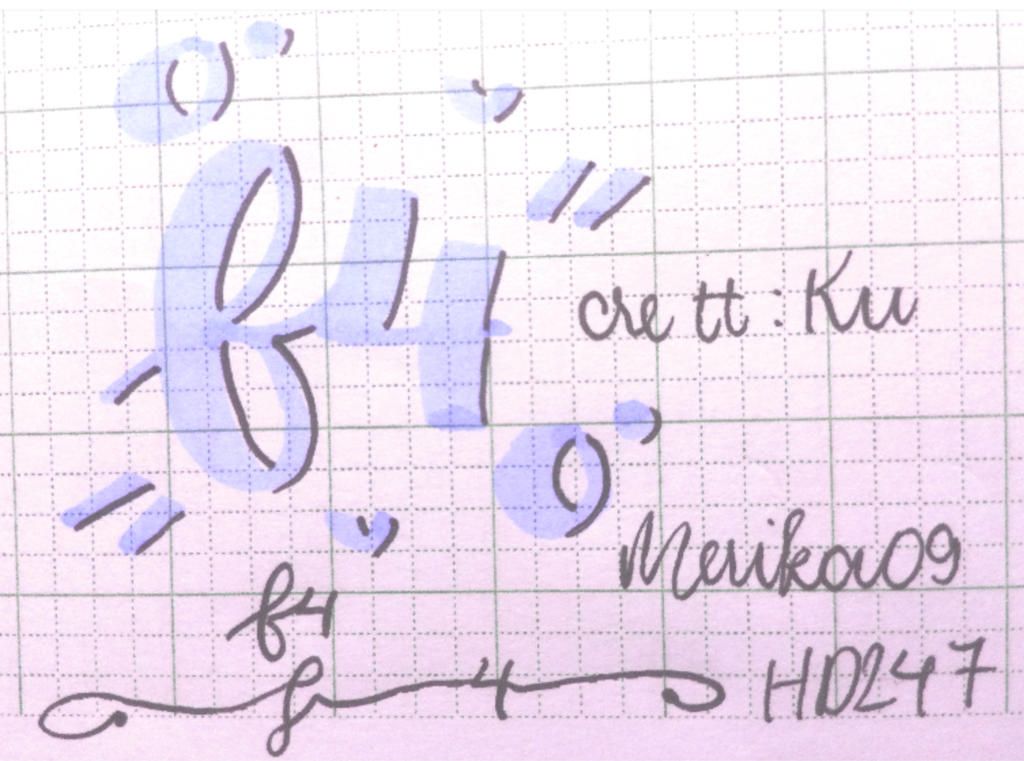 f4
crett: Ku
Merika09
f4
f 4
HD247